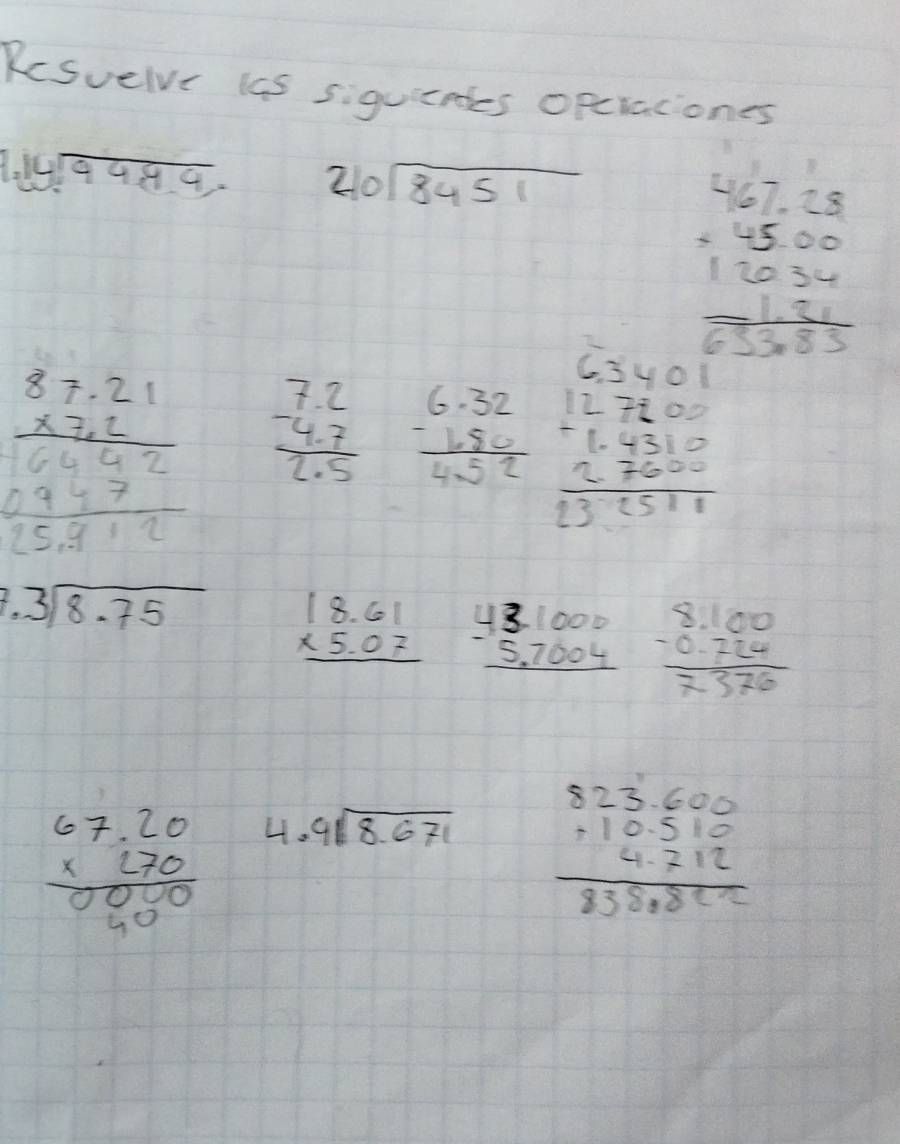 Resuelve las siguientes operaciones
210 8451
467.28
+ 45.00
120 34
1.21
633.83
87.21
×7.2
7.2
-4.7
2.5
6.32
-1.80
4.52
6.3401
127200
+ 1.4310
2.7600
23 2511
8.75
18.61
×5.07
43.1000
-5.7004
8.100
-0.724
7.376
67.20
× 270
0000
40
4.91 8.671
823.600
+10.510
4.712
838.822